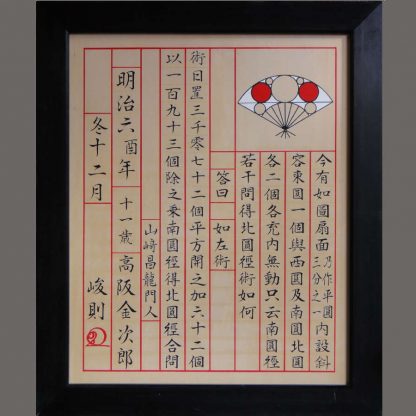 今有如圖扇面乃作平圓三分之一內設斜
容東圓一個與西圓及南圓北圓
各二個各充內無動只云南圓徑
若干問得北圓徑術如何
答曰 如左術
術曰置三千零七十二個平方開之加六十二個
以一百九十三個除之乗南圓徑得北圓徑合問
山﨑昌龍門人
明治六酉年 十一歳 高阪金次郎
冬十二月 峻則